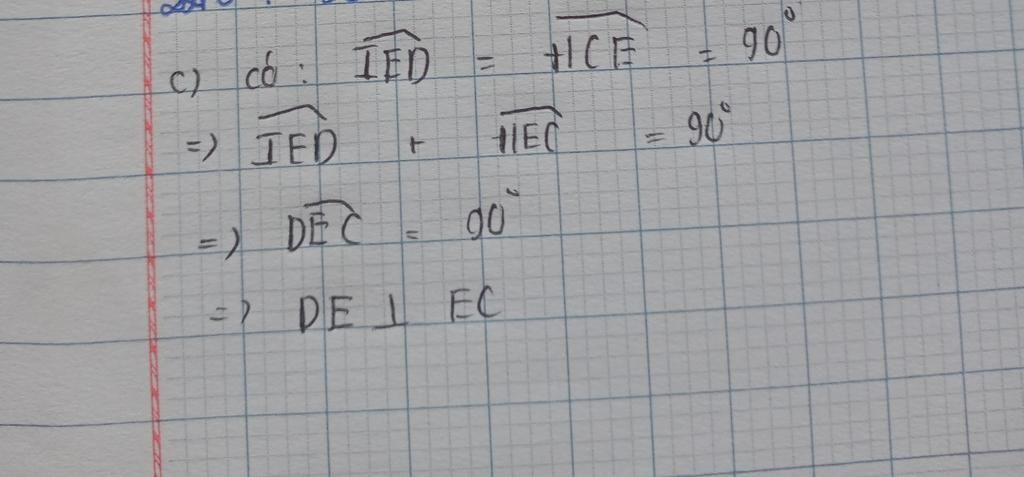 c) có : IED = HCE = 90°
=> IED + HEC = 90°
=> DEC = 90°
=> DE ⊥ EC